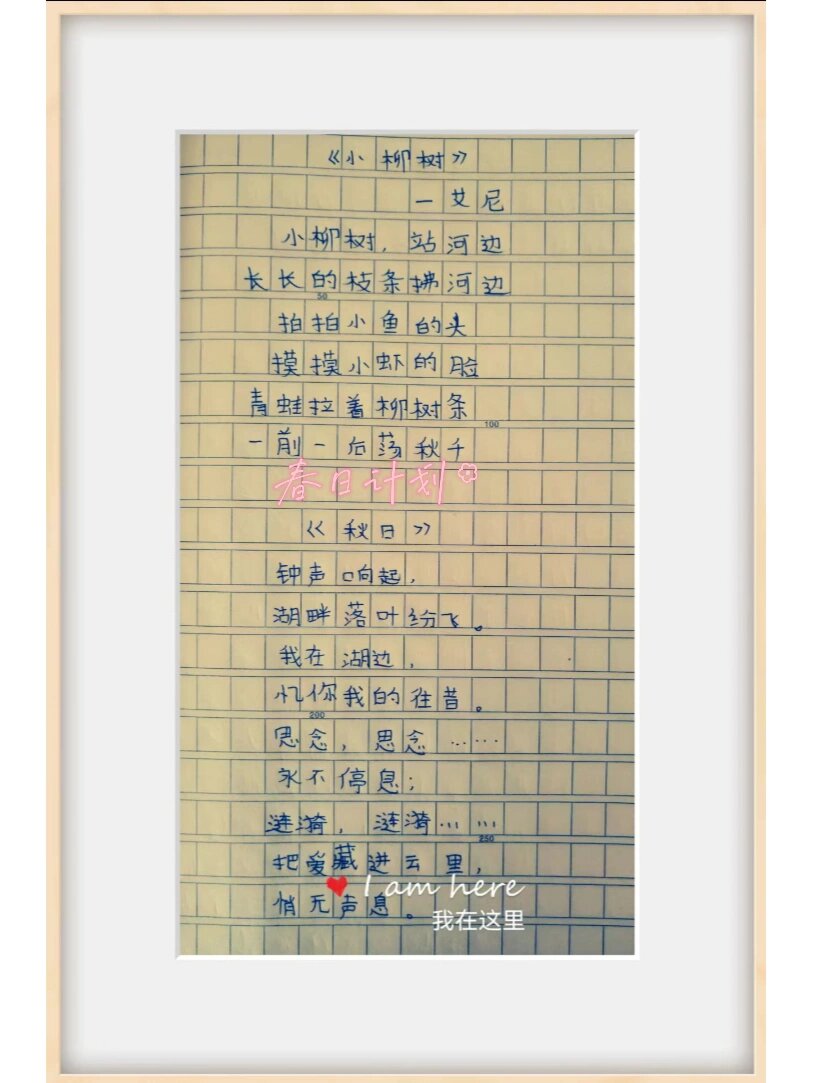 《小柳树》
一艾尼
小柳树，站河边
长长的枝条拂河边
50
拍拍小鱼的头
摸摸小虾的脸
青蛙拉着柳树条
100
一前一后荡秋千
春日计划
《秋日》
钟声响起，
湖畔落叶纷飞。
我在湖边，
忆你我的往昔。
200
思念，思念……
永不停息；
涟漪，涟漪……
250
把爱藏进云里，
I am here
悄无声息。
我在这里